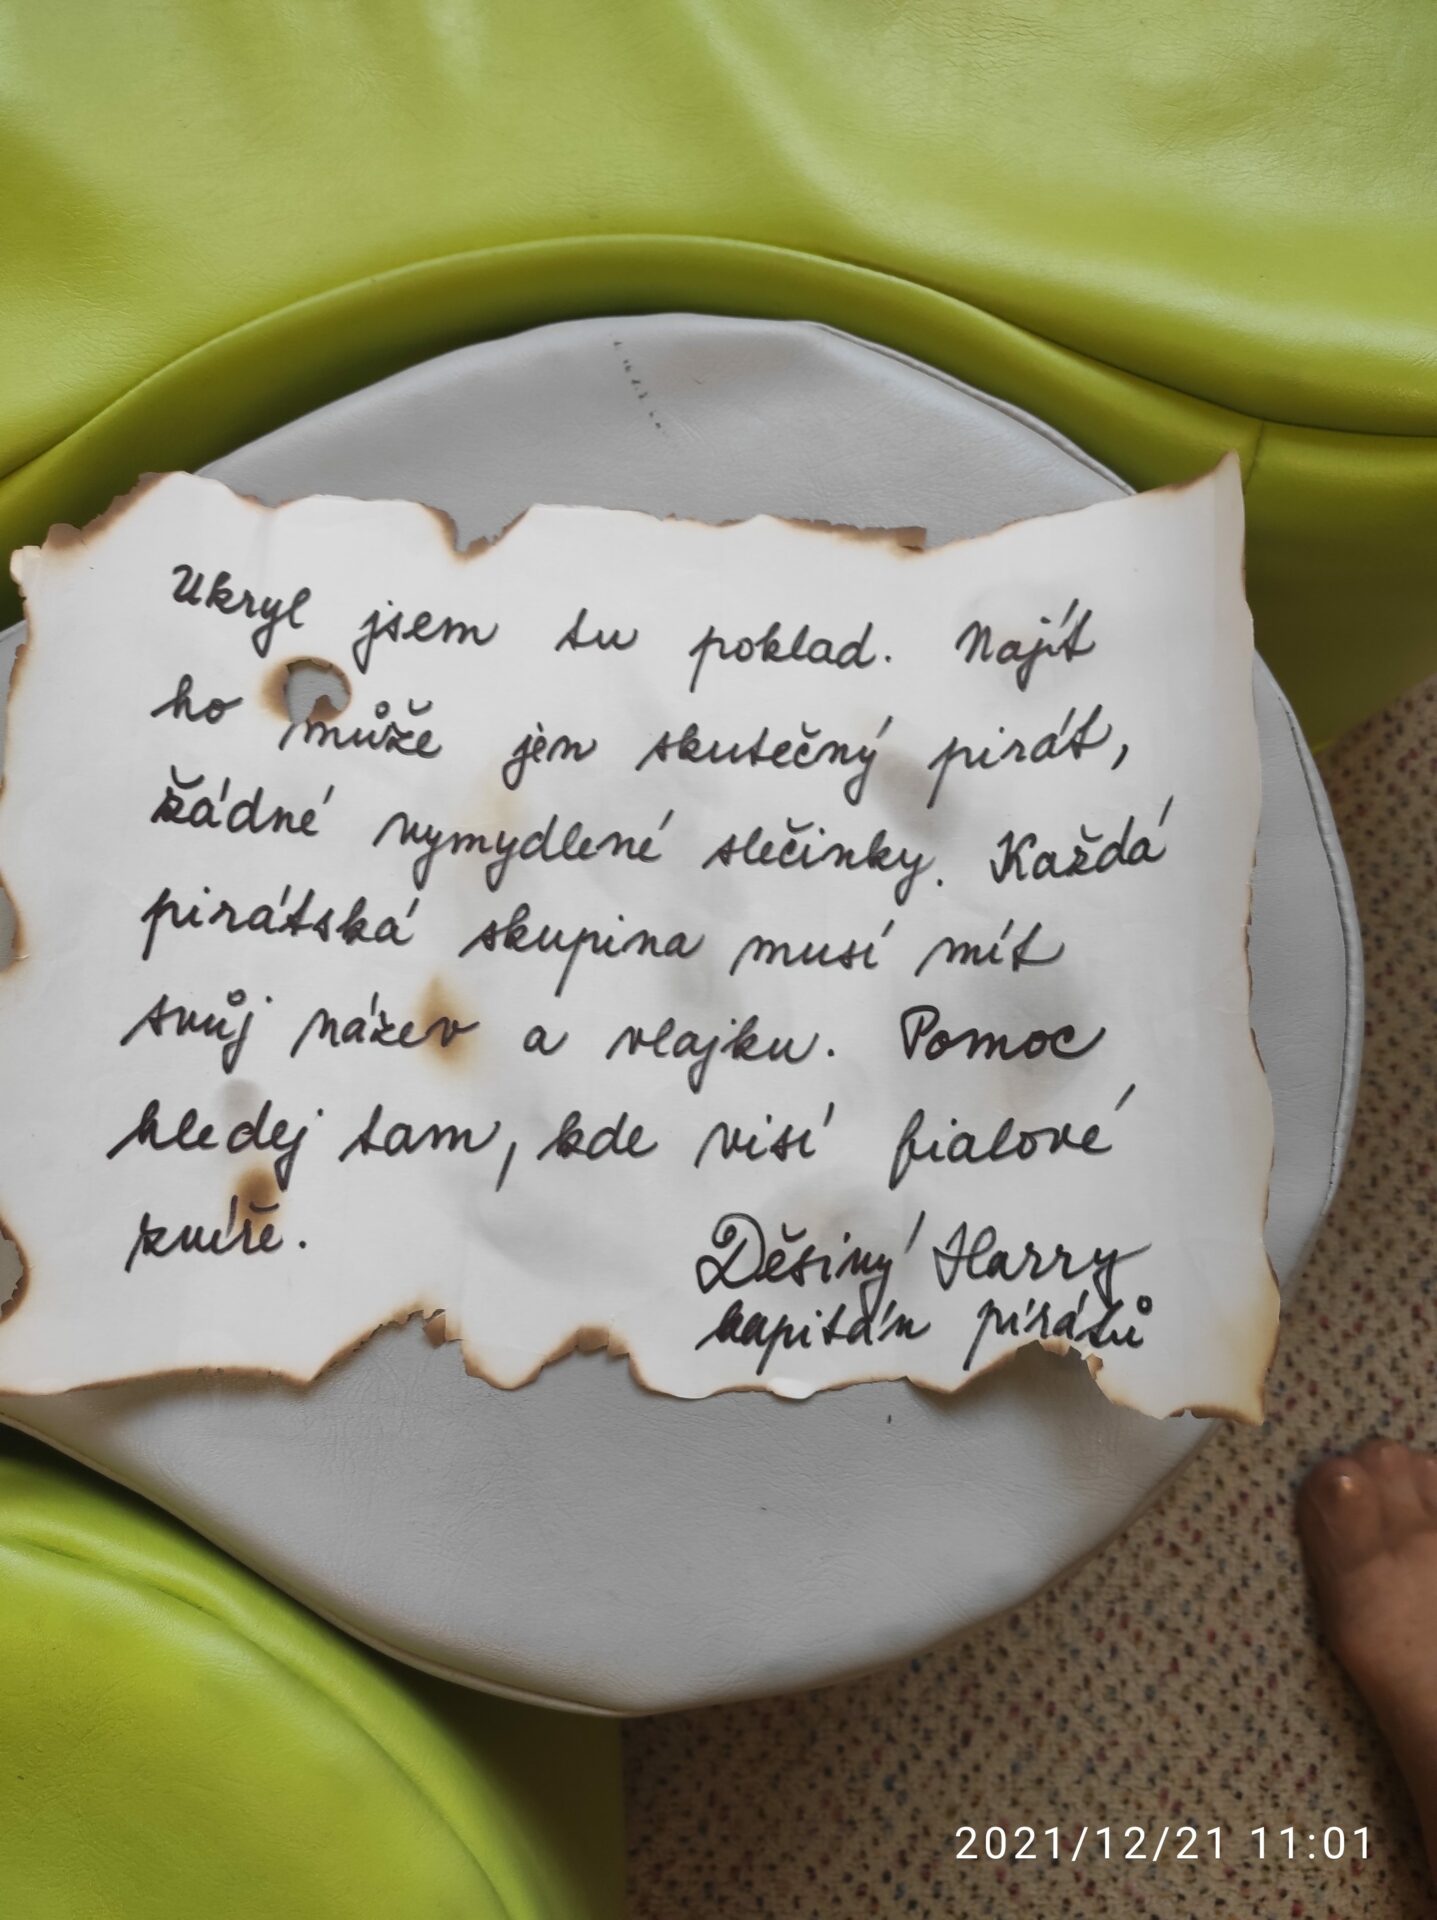 Ukryl jsem tu poklad. Najít
ho může jen skutečný pirát,
žádné vymydlené slečinky. Každá
pirátská skupina musí mít
svůj název a vlajku. Pomoc
hledej tam, kde visí fialové
zvíře.
Děsivý Harry
kapitán pirátů
2021/12/21 11:01